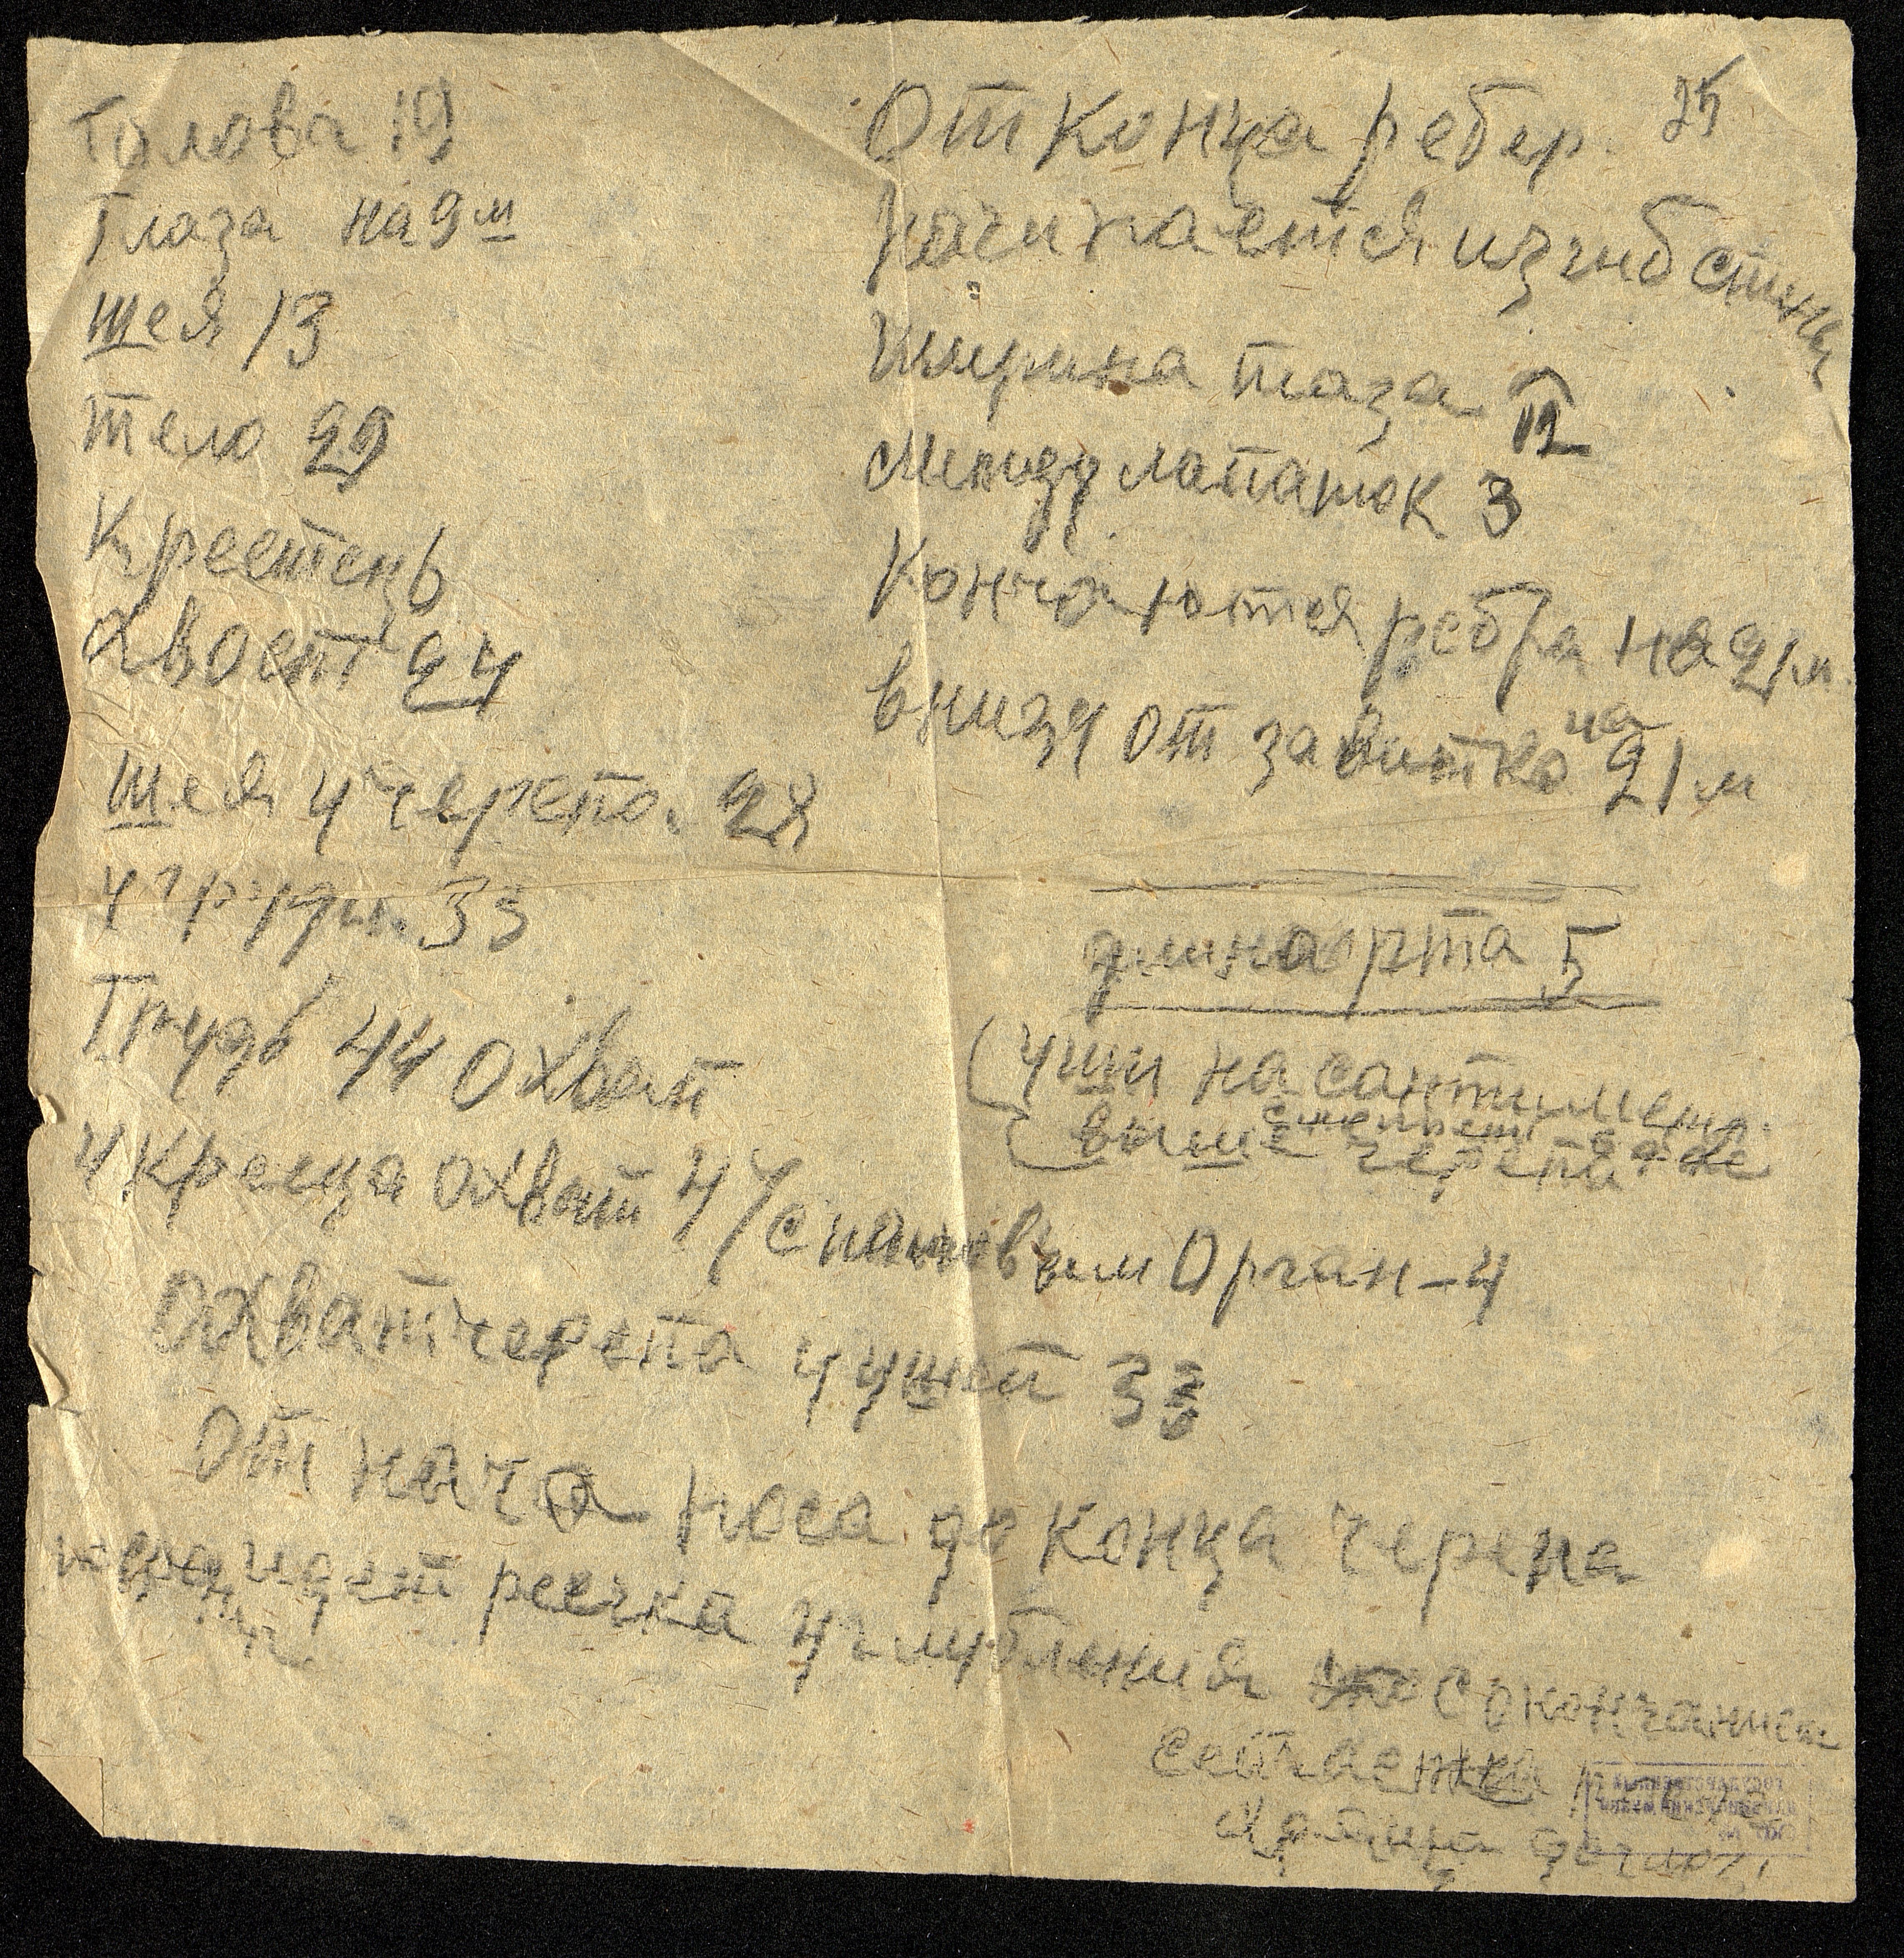 Голова 19
Глаза на 9 м
шея 13
тело 29
Крестец 6
Хвост 24
шея у черепа. 28
у груди. 33
Грудь 44 Охват
у Крестца охват 47 с
Орган - 4
Охват черепа у ушей 33
от нача носа до конца черепа
идет реечка углубления с окончанием
хрящи
25
От конца ребер
начинается изгиб спины
Ширина таза 12
Между лопаток 3
Кончаются ребра на 21 м.
внизу от завитка на 21 м
длина рта 5
Уши на сантиметр.
выше черепа